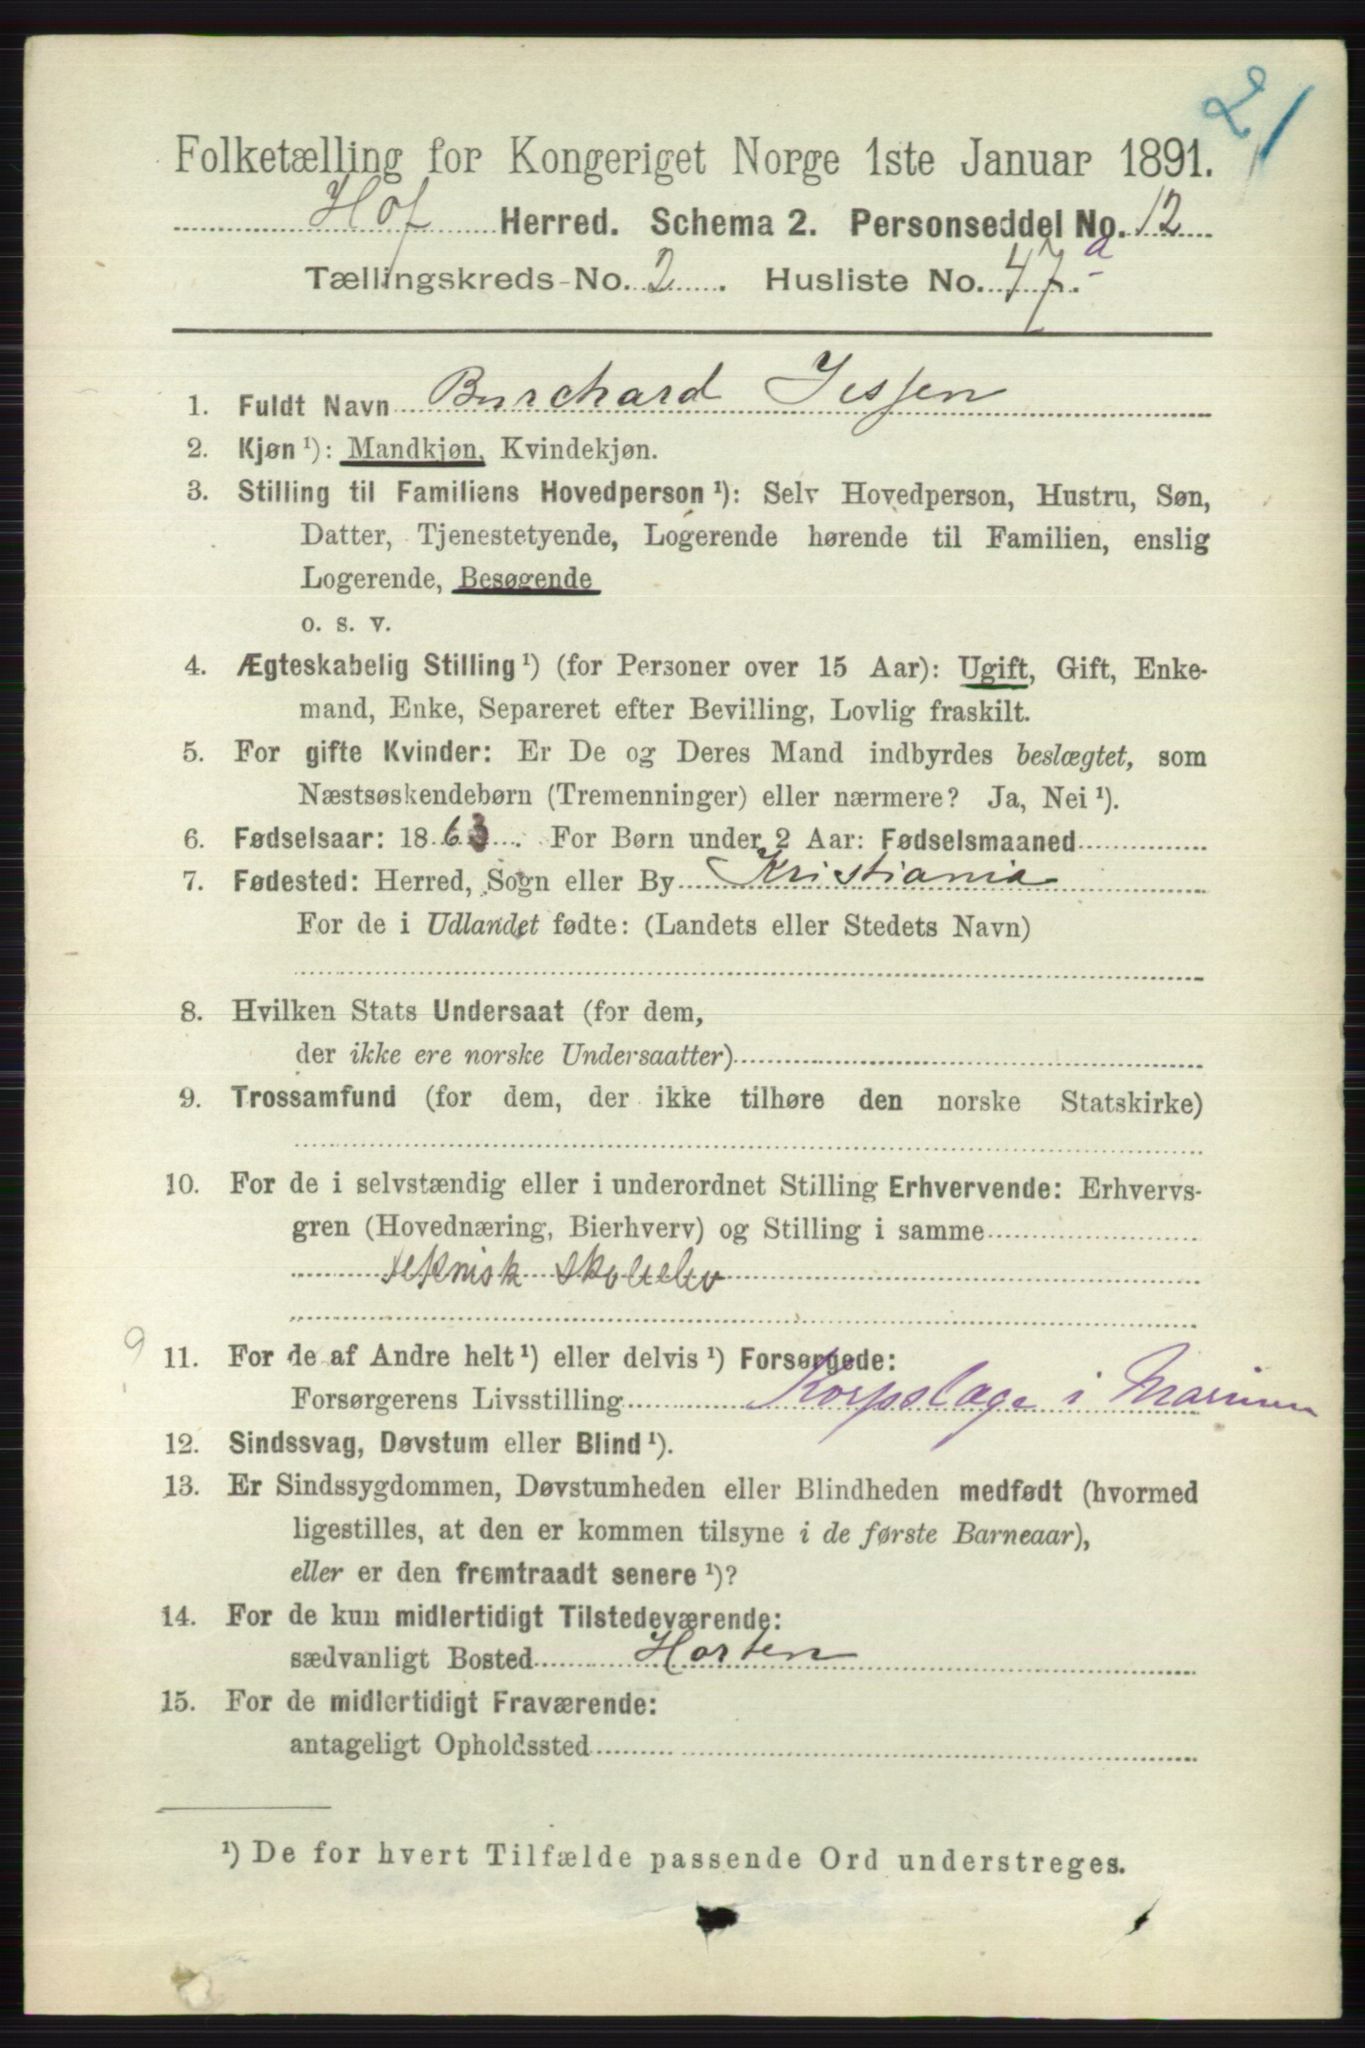 21
Folketælling for Kongeriget Norge 1ste Januar 1891.
Hof Herred. Schema 2. Personseddel No. 12
Tællingskreds-No. 2. Husliste No. 47.a
1. Fuldt Navn Burchard Jessen
2. Kjøn ¹): Mandkjøn, Kvindekjøn.
3. Stilling til Familiens Hovedperson ¹): Selv Hovedperson, Hustru, Søn,
Datter, Tjenestetyende, Logerende hørende til Familien, enslig
Logerende, Besøgende
o. s. v.
4. Ægteskabelig Stilling ¹) (for Personer over 15 Aar): Ugift, Gift, Enke-
mand, Enke, Separeret efter Bevilling, Lovlig fraskilt.
5. For gifte Kvinder: Er De og Deres Mand indbyrdes beslægtet, som
Næstsøskendebørn (Tremenninger) eller nærmere? Ja, Nei ¹).
6. Fødselsaar: 1863. For Børn under 2 Aar: Fødselsmaaned
7. Fødested: Herred, Sogn eller By Kristiania
For de i Udlandet fødte: (Landets eller Stedets Navn)
8. Hvilken Stats Undersaat (for dem,
der ikke ere norske Undersaatter)
9. Trossamfund (for dem, der ikke tilhøre den norske Statskirke)
10. For de i selvstændig eller i underordnet Stilling Erhvervende: Erhvervs-
gren (Hovednæring, Bierhverv) og Stilling i samme
teknisk skoleelev
9 11. For de af Andre helt ¹) eller delvis ¹) Forsørgede:
Forsørgerens Livsstilling Korpslæge i Marinen
12. Sindssvag, Døvstum eller Blind ¹).
13. Er Sindssygdommen, Døvstumheden eller Blindheden medfødt (hvormed
ligestilles, at den er kommen tilsyne i de første Barneaar),
eller er den fremtraadt senere ¹)?
14. For de kun midlertidigt Tilstedeværende:
sædvanligt Bosted Horten
15. For de midlertidigt Fraværende:
antageligt Opholdssted
¹) De for hvert Tilfælde passende Ord understreges.